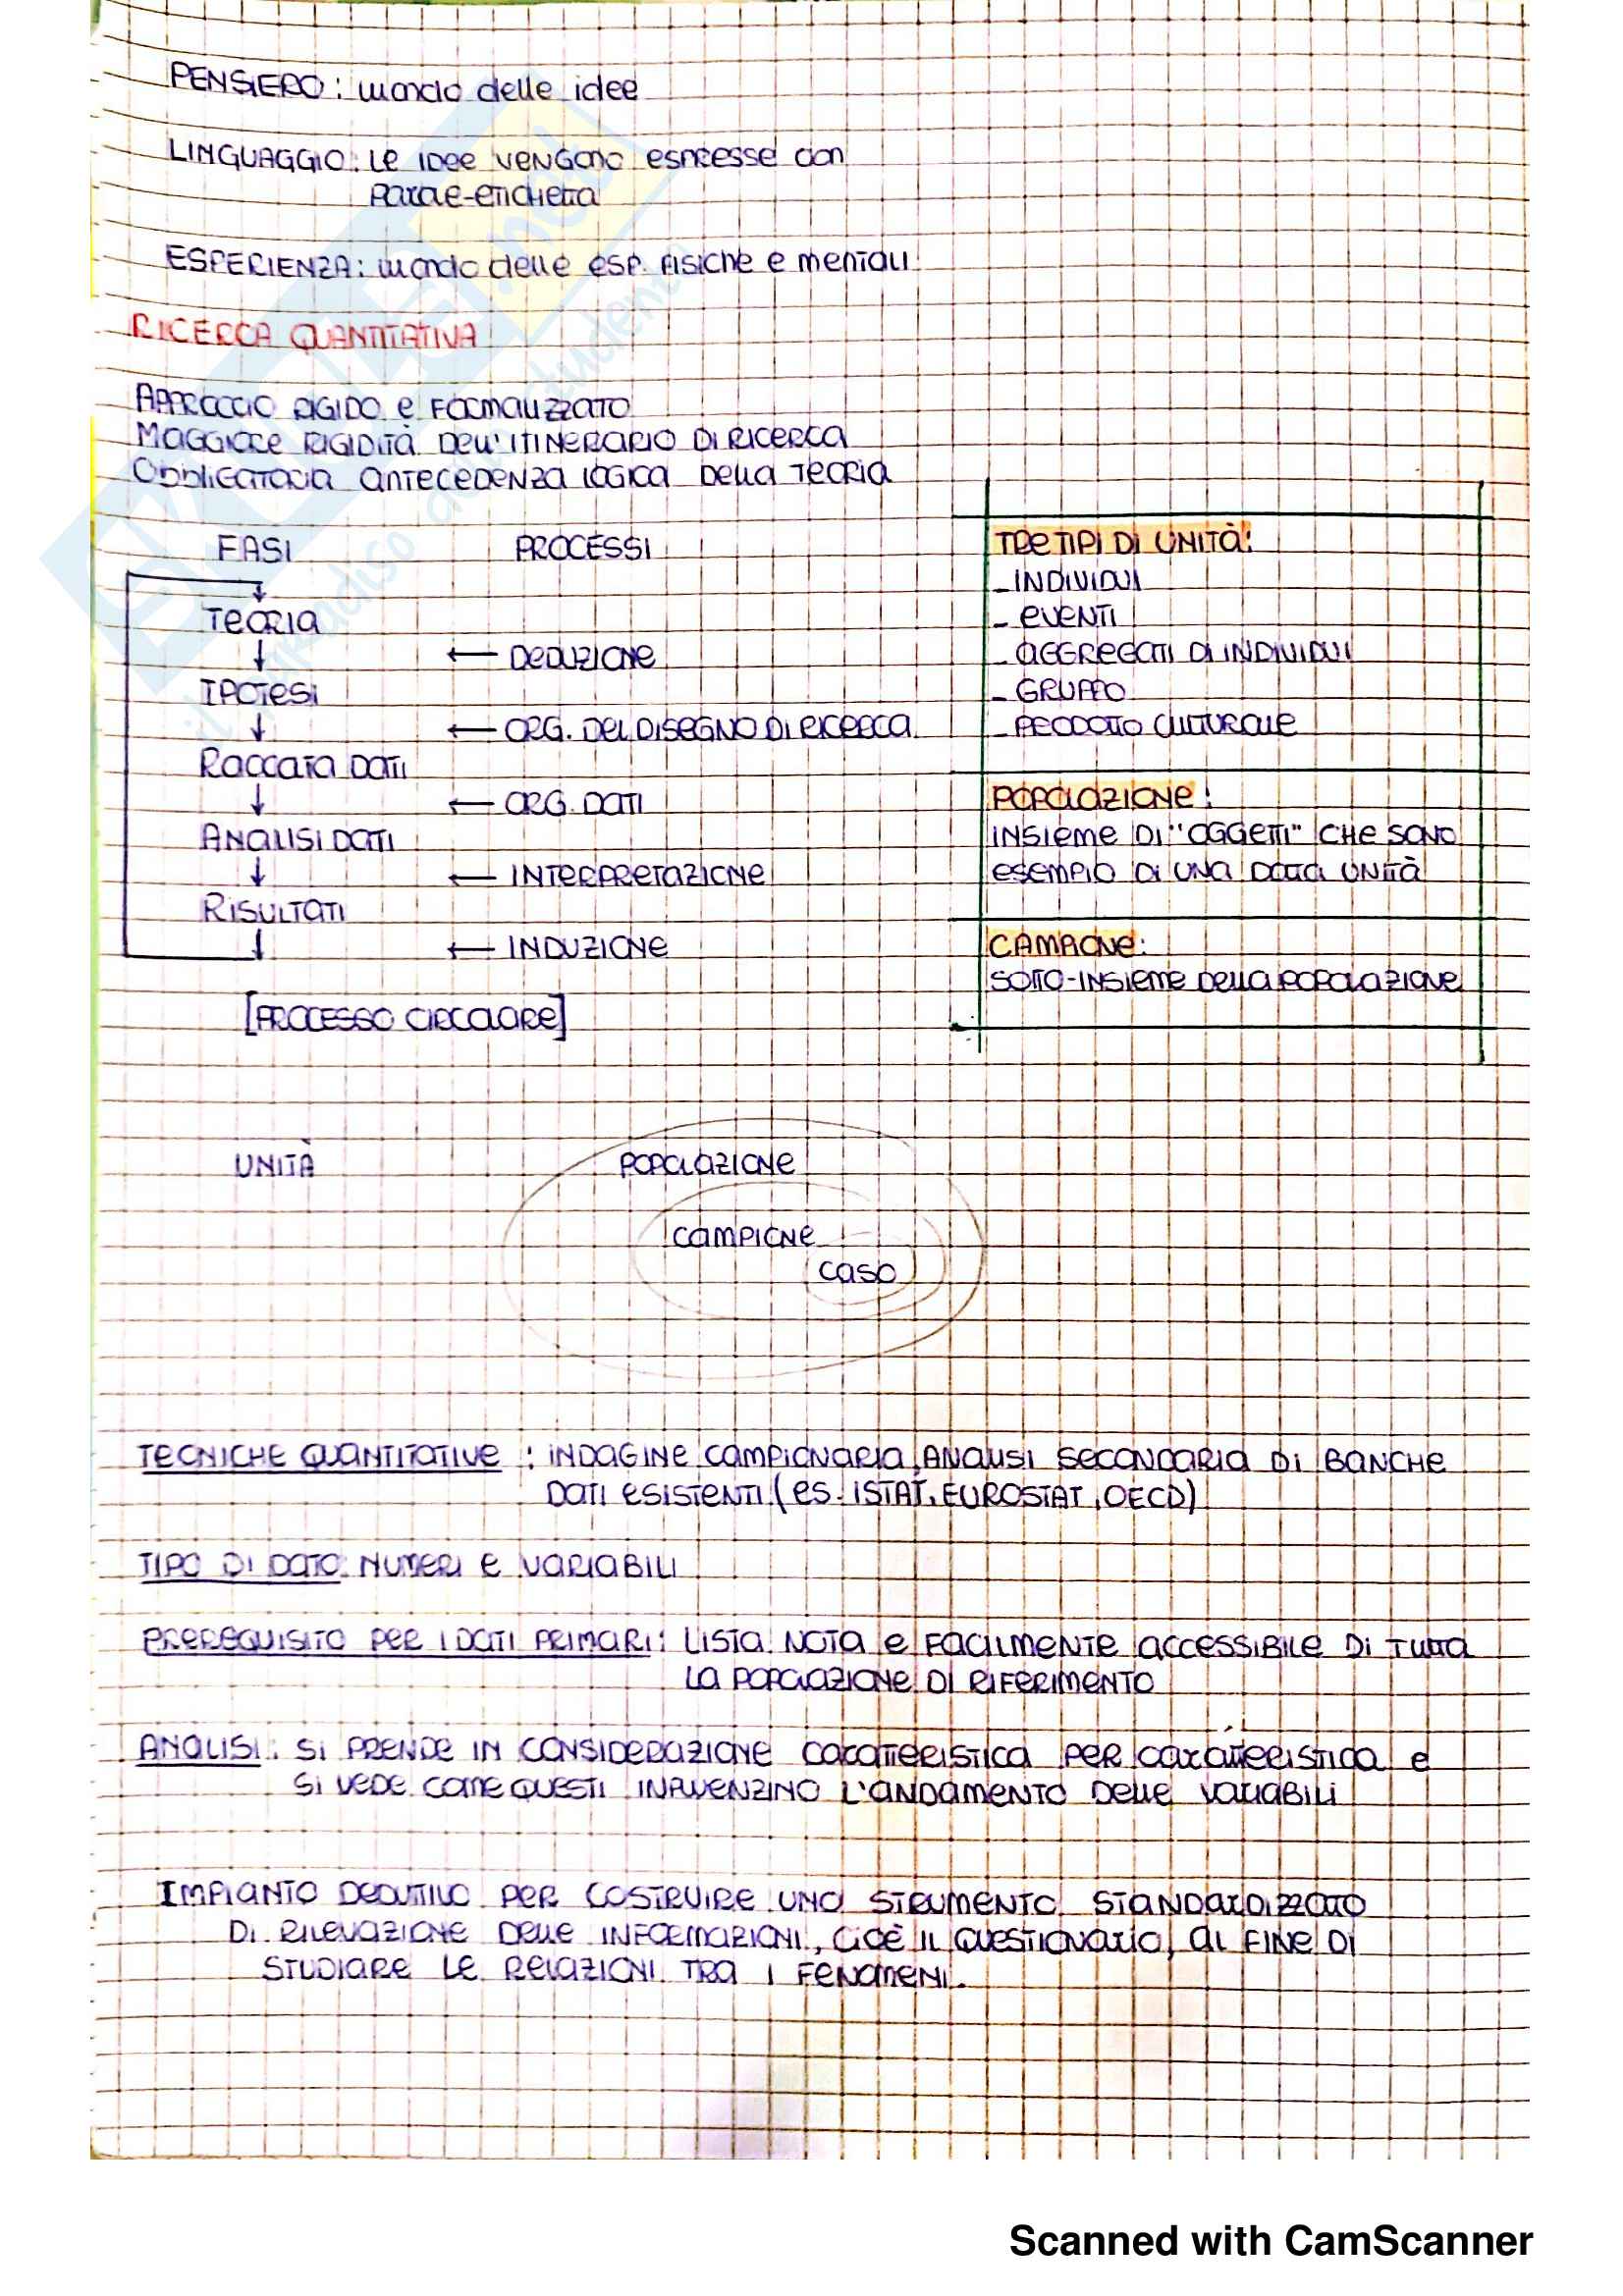 PENSIERO: mondo delle idee
LINGUAGGIO: Le IDee VENGONO espresse con
Parole-etichetta
ESPERIENZA: mondo delle esp. fisiche e mentali
RICERCA QUANTITATIVA
APPROCCIO RIGIDO e FORMALIZZATO
MAGGIORE RIGIDITÀ DELL'ITINERARIO DI RICERCA
Obbligatoria antecedenza logica della teoria
FASI PROCESSI
Teoria
← DEDUZIONE
IPOTESI
← ORG. DEL DISEGNO DI RICERCA
Raccolta DATI
← ORG. DATI
ANALISI DATI
← INTERPRETAZIONE
RISULTATI
← INDUZIONE
[PROCESSO CIRCOLARE]
TRE TIPI DI UNITÀ:
- INDIVIDUI
- EVENTI
- AGGREGATI DI INDIVIDUI
- GRUPPO
- PRODOTTO CULTURALE
POPOLAZIONE:
INSIEME DI "OGGETTI" CHE SONO
esempio DI UNA DATA UNITÀ
CAMPIONE:
SOTTO-INSIEME DELLA POPOLAZIONE
UNITÀ POPOLAZIONE
CAMPIONE
CASO
TECNICHE QUANTITATIVE: INDAGINE CAMPIONARIA, ANALISI SECONDARIA DI BANCHE
DATI ESISTENTI (es. ISTAT, EUROSTAT, OECD)
TIPO DI DATO: NUMERI E VARIABILI
PREREQUISITO PER I DATI PRIMARI: LISTA NOTA e FACILMENTE ACCESSIBILE DI TUTTA
LA POPOLAZIONE DI RIFERIMENTO
ANALISI: SI PRENDE IN CONSIDERAZIONE CARATTERISTICA PER CARATTERISTICA e
SI VEDE COME QUESTI INFLUENZINO L'ANDAMENTO DELLE VARIABILI
IMPIANTO DEDUTTIVO PER COSTRUIRE UNO STRUMENTO STANDARDIZZATO
DI RILEVAZIONE DELLE INFORMAZIONI, CIOÈ IL QUESTIONARIO, AL FINE DI
STUDIARE LE RELAZIONI TRA I FENOMENI.
Scanned with CamScanner